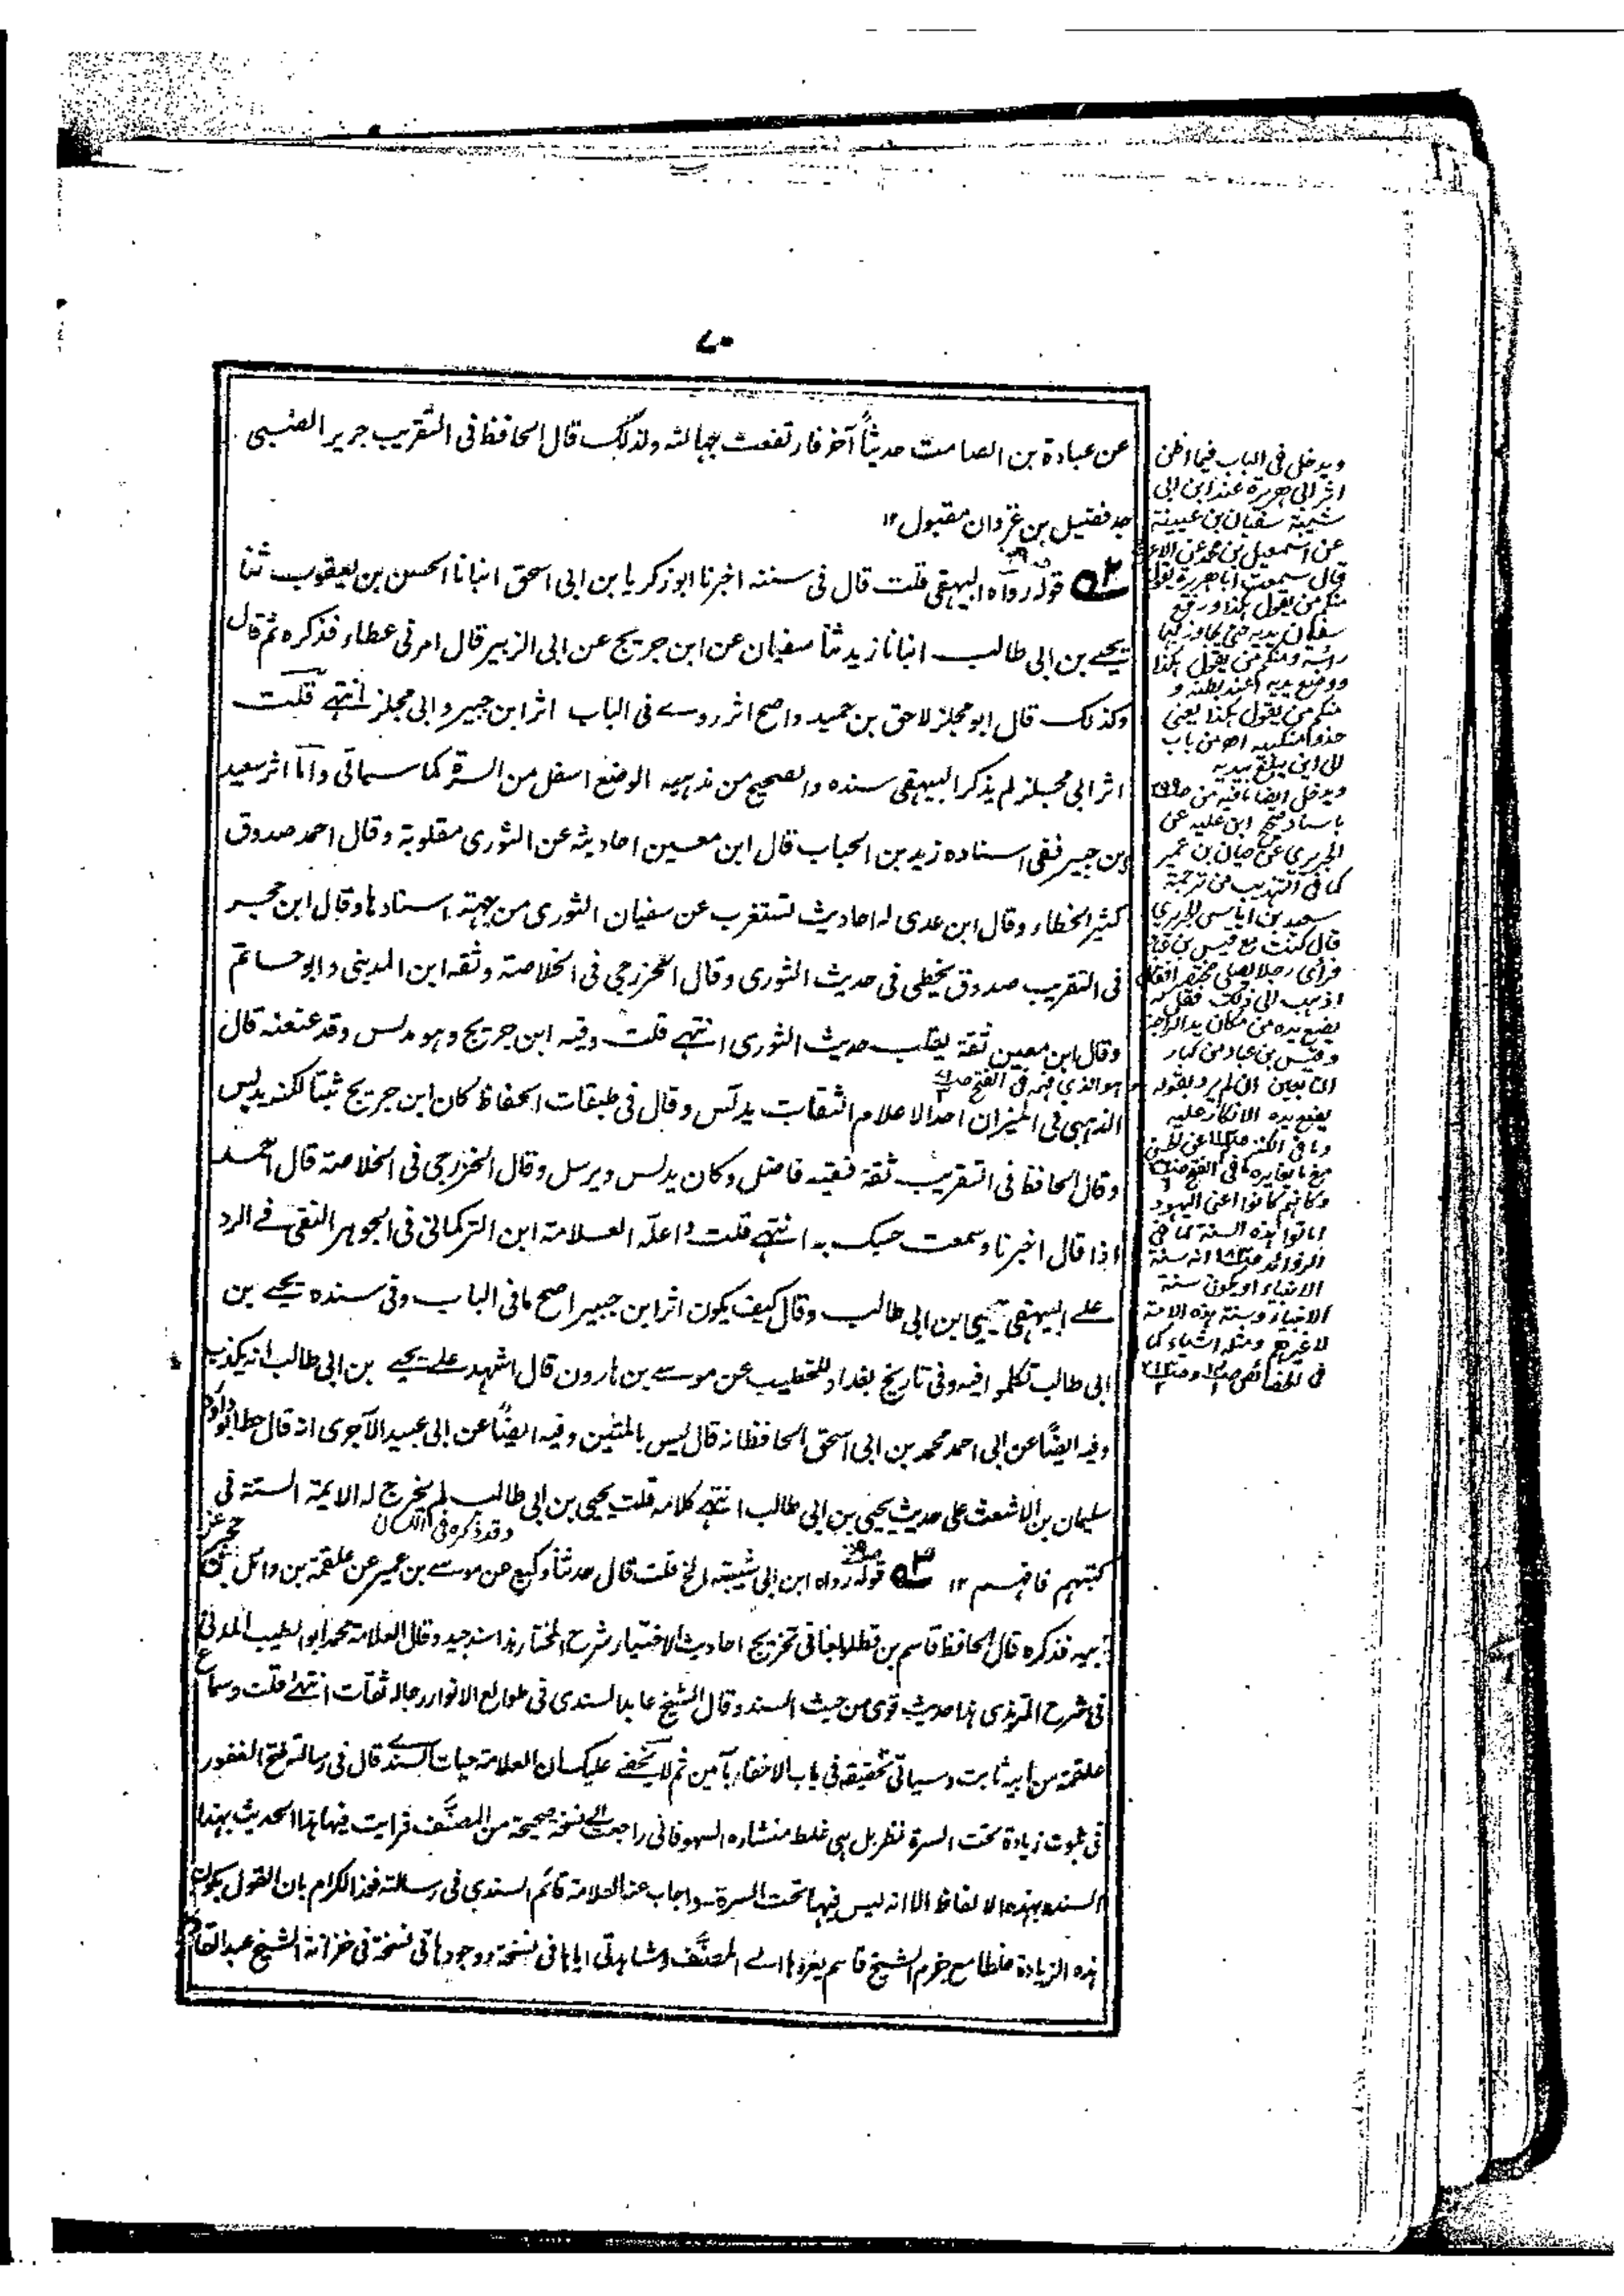 ٧٠
عن عبادة بن الصامت حديثاً آخر فارتفعت جهالته ولذلك قال الحافظ فى التقريب جرير الضبى
جد فضيل بن غزوان مقبول ١٢
قوله رواه البيهقى قلت قال فى سننه اخبرنا ابو زكريا بن ابى اسحق انبانا الحسن بن يعقوب ثنا
يحيے بن ابى طالب انبانا زيد ثنا سفيان عن ابن جريج عن ابى الزبير قال امرنى عطاء فذكره ثم قال
وكذلك قال ابو مجلز لاحق بن حميد واصح اثر روے فى الباب اثر ابن جبير وابى مجلز انتهے قلت
اثر ابى مجلز لم يذكر البيهقى سنده والصحيح من مذهبه الوضع اسفل من السرة كما سياتى واما اثر سعيد
بن جبير ففى اسناده زيد بن الحباب قال ابن معين احاديثه عن الثورى مقلوبة وقال احمد صدوق
كثير الخطاء وقال ابن عدى له احاديث تستغرب عن سفيان الثورى من جهة اسنادها وقال ابن حجر
فى التقريب صدوق يخطى فى حديث الثورى وقال الخزرجى فى الخلاصة وثقه ابن المدينى وابو حاتم
وقال ابن معين ثقة يقلب حديث الثورى انتهے قلت وفيه ابن جريج وهو مدلس وقد عنعنه قال
الذهبى فى الميزان احد الاعلام الثقات يدلس وقال فى طبقات الحفاظ كان ابن جريج ثبتا لكنه يدلس
وقال الحافظ فى التقريب ثقة فقيه فاضل وكان يدلس ويرسل وقال الخزرجى فى الخلاصة قال احمد
اذا قال اخبرنا وسمعت حسبك به انتهے قلت واعله العلامة ابن التركمانى فى الجوهر النقى فے الرد
علے البيهقى بيحيى ابن ابى طالب وقال كيف يكون اثر ابن جبير اصح ما فى الباب وفى سنده يحيے بن
ابى طالب تكلموا فيه وفى تاريخ بغداد للخطيب عن موسے بن هارون قال اشهد علے يحيے بن ابى طالب انه يكذب
وفيه ايضاً عن ابى احمد محمد بن ابى اسحق الحافظ انه قال ليس بالمتين وفيه ايضاً عن ابى عبيد الآجرى انه قال خط ابو داؤد
سليمان بن الاشعث على حديث يحيى بن ابى طالب انتهے كلامه قلت يحيى بن ابى طالب لم يخرج له الايمة الستة فى
كتبهم فافهم ١٢ قوله رواه ابن ابى شيبة الخ قلت قال حدثنا وكيع عن موسے بن عمير عن علقمة بن وائل بن حجر عن
ابيه فذكره قال الحافظ قاسم بن قطلوبغا فى تخريج احاديث الاختيار شرح المختار هذا سند جيد وقال العلامة محمد ابو الطيب المدنى
فى شرح الترمذى هذا حديث قوى من حيث السند وقال الشيخ عابد السندى فى طوالع الانوار رجاله ثقات انتهے قلت وسماع
علقمة من ابيه ثابت وسياتى تحقيقه فى باب الاخفاء بآمين ثم لا يخفے عليك ان العلامة حيات السندے قال فى رسالته فتح الغفور
فى ثبوت زيادة تحت السرة نظر بل هى غلط منشاره السهو فانى راجعت الے نسخة صحيحة من المصنَّف فرايت فيها هذا الحديث بهذا
السند وبهذه الالفاظ الا انه ليس فيها تحت السرة واجاب عنه العلامة قائم السندى فى رسالته فوز الكرام بان القول بكون
هذه الزيادة غلطا مع جزم الشيخ قاسم بعزوها الے المصنَّف ومشاهدتى اياها فى نسخة ووجودها فى نسخة فى خزانة الشيخ عبد القادر
ويدخل فى الباب فيما اظن
اثر ابى هريرة عند ابن ابى
شيبة سفيان بن عيينة
عن اسمعيل بن محمد عن الاعرج
قال سمعت ابا هريرة يقول
منكم من يقول هكذا ورفع
سفيان يديه حتى يجاوز بهما
راسه ومنكم من يقول هكذا
ووضع يديه عند بطنه و
منكم من يقول هكذا يعنى
حذو منكبيه اه من باب
الى اين يبلغ بيديه
ويدخل ايضا ما فيه من
باسناد صحيح ابن علية عن
الجريرى عن حيان بن عمير
كما فى التهذيب من ترجمة
سعيد بن اياس الجريرى
قال كنت مع قيس بن عباد
فرأى رجلا يصلى
اذهب الى ذلك فقل له
يضع يده من مكان يد الراجز
وقيس بن عباد من كبار
التابعين
يضع يده الانكار عليه
وكانهم كانوا اعنى اليهود
اماتوا هذه السنة كما فى
الزوائد انه سنة
الانبياء او يكون سنة
الانبياء وسنة هذه الامة
لا غيرهم ومثله اشياء كما
فى الخصائص